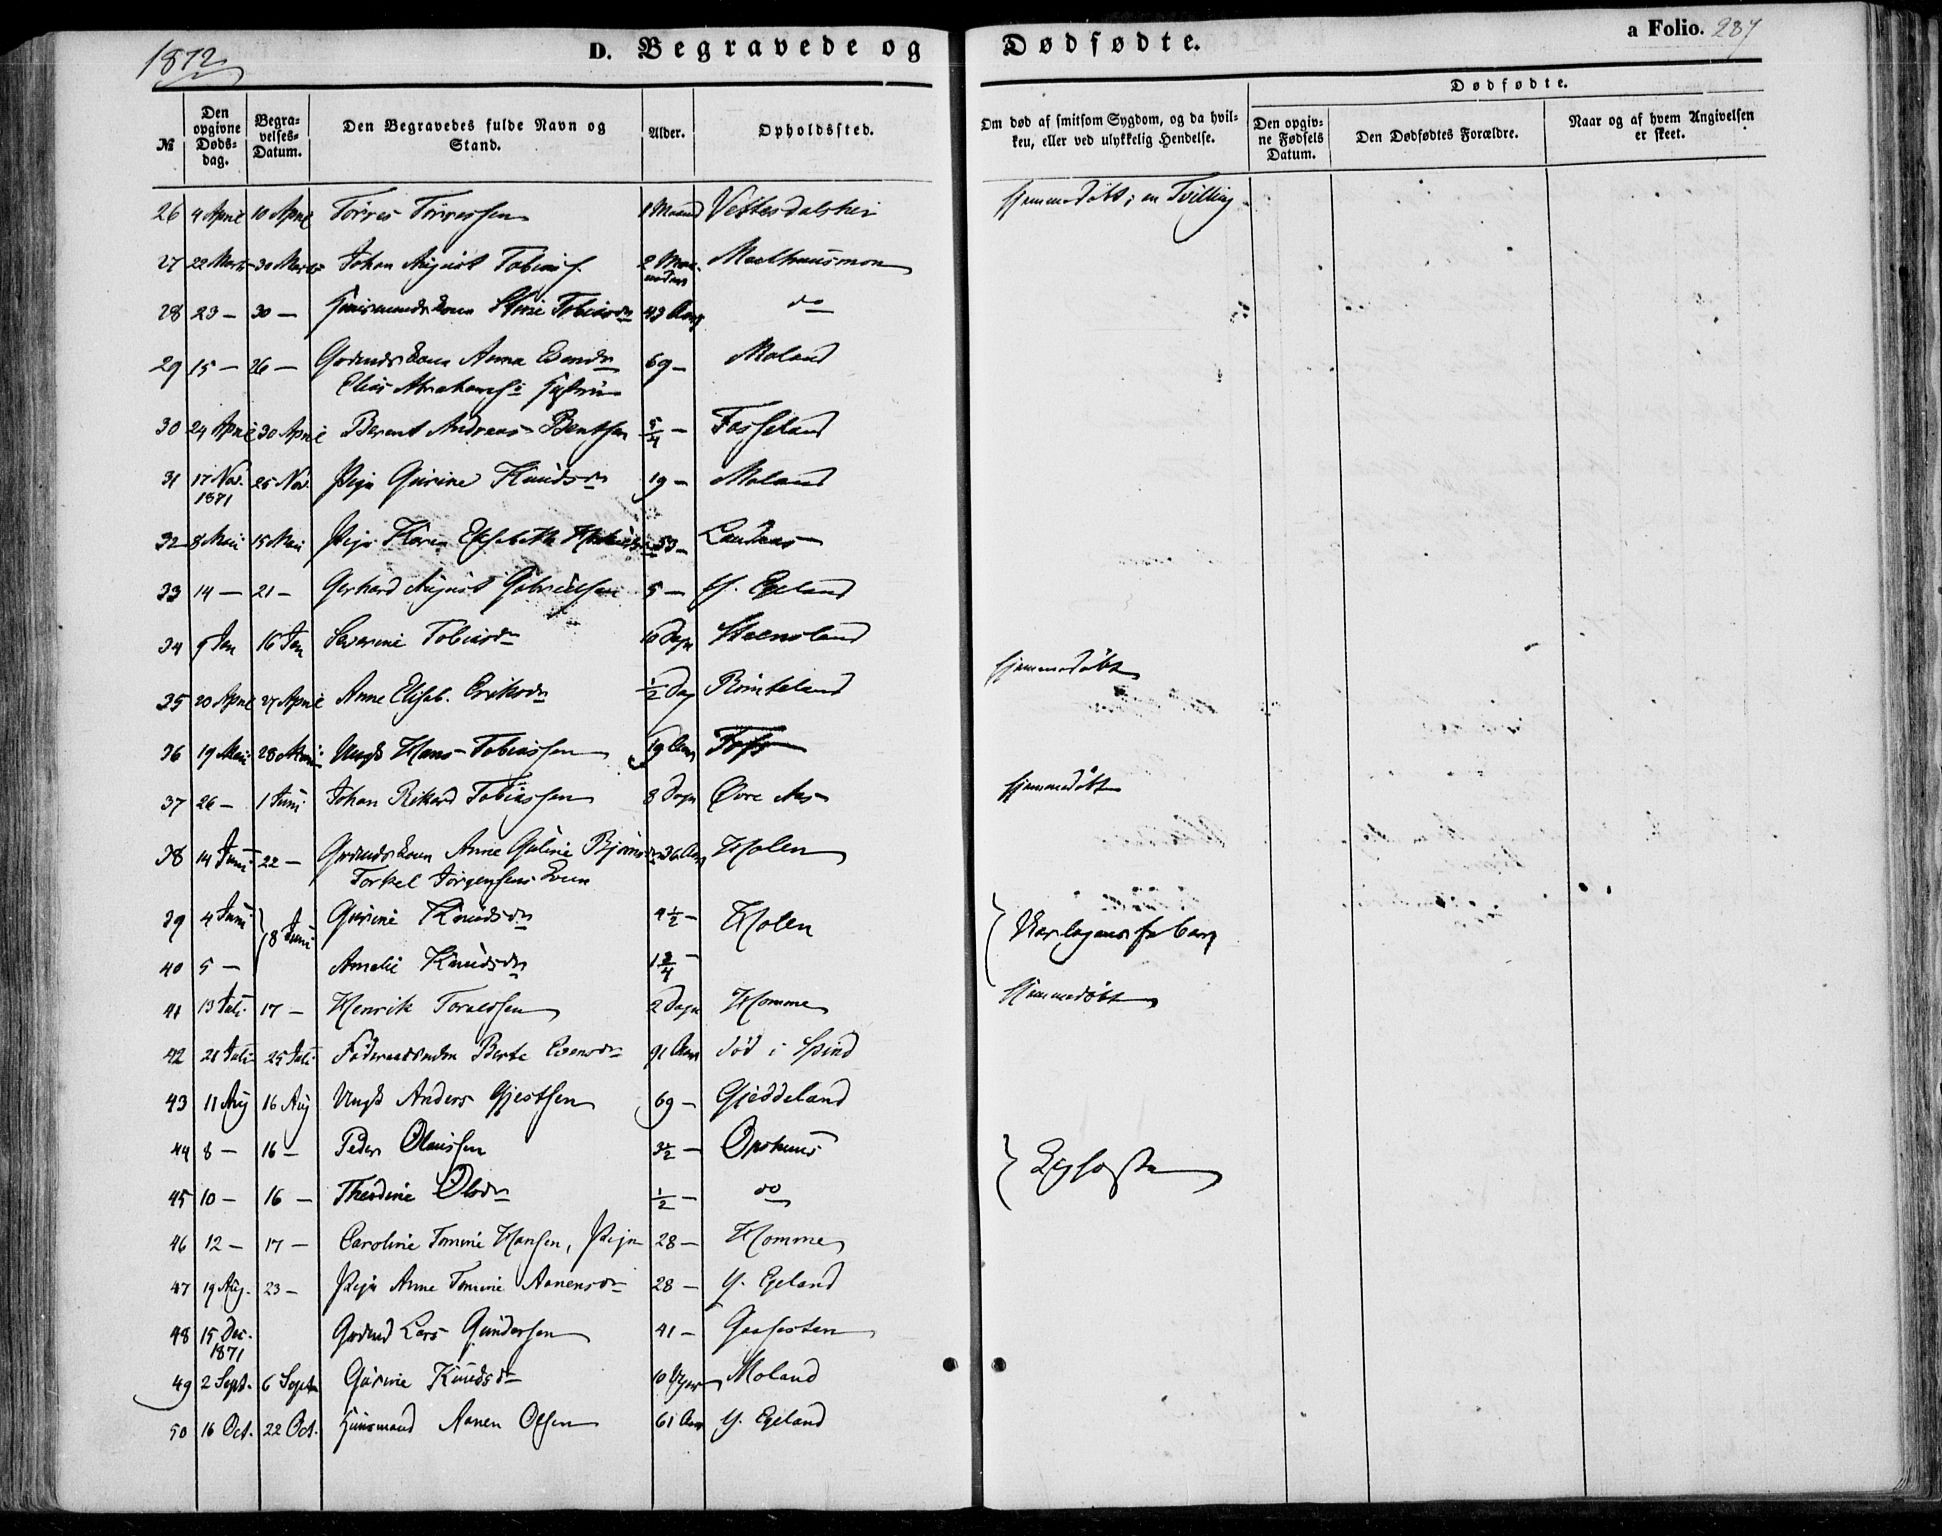 1872
D. Begravede og Dødfødte.
a Folio. 287
№
Den opgivne Døds-dag.
Begra-velses-Datum.
Den Begravedes fulde Navn og Stand.
Alder.
Opholdssted.
Om død af smitsom Sygdom, og da hvil-ken, eller ved ulykkelig Hendelse.
Dødfødte.
Den opgiv-ne Fødsels Datum.
Den Dødfødtes Forældre.
Naar og af hvem Angivelsen er skeet.
26 4 April 10 April Torres Torressen 1 Maaned hjemmedøbt; en Tvilling
27 22 Marts 30 Marts Johan August Tobiass. 2 Maaneder
28 23 — 30 — Huusmandskone Stine Tobiasdr 43 Aar do
29 15 — 26 — Gaardmandskone Anna 69 — Moland
Elias Abrahams
30 24 April 30 April Berent Andreas Bentsen 5/4 — Fosseland
31 17 Nov. 1871 25 Nov. Pige Gurine Knudsdr 19 — Moland
32 8 Mai 15 Mai Pige Karen Elisabeth 53 — Landaas
33 14 — 21 — Gerhard August Gabrielsen 5 — Y. Egeland
34 9 Jan 16 Jan Severine Tobiasdr 10 Dage Steensland hjemmedøbt
35 20 April 27 April Anne Elisab. Eriksdr 1/2 Dag Røinteland
36 19 Mai 28 Mai Ungk Hans Tobiassen 19 Aar Foss
37 26 — 1 Juni Johan Rikard Tobiassen 8 Dage Øvre Aas hjemmedøbt
38 14 Juni 22 — Gaardmandskone Anne Guline 36 Aar Holen
Torkel Jørgensens Kone
39 4 Juni 18 Juni Gurine Knudsdr 4 1/2 — Holen
40 5 — Amalie Knudsdr 1 3/4 —
41 13 Juli 17 — Henrik Torvaldsen 2 Dage Homme hjemmedøbt
42 21 Juli 25 Juli Berte Evensdr 91 Aar død i Spind
43 11 Aug 16 Aug Ungk Anders Gjestsen 69 — Gjeddeland
44 8 — 16 — Peder Olaussen 3 1/2 — Opshuus
45 10 — 16 — Theodine Olsdr 1/2 — do
46 12 — 17 — Caroline Tomine Hansen, Pige 28 — Homme
47 19 Aug. 23 — Pige Anne Tomine Aanensdr 28 — Y. Egeland
48 15 Dec. 1871 Gaardmd Lars Gundersen 41 — Gaaseston
49 2 Sept. 6 Septr Gurine Knudsdr 10 Uger Moland
50 16 Oct. 22 Oct. Huusmand Aanen Olsen 61 Aar Y. Egeland